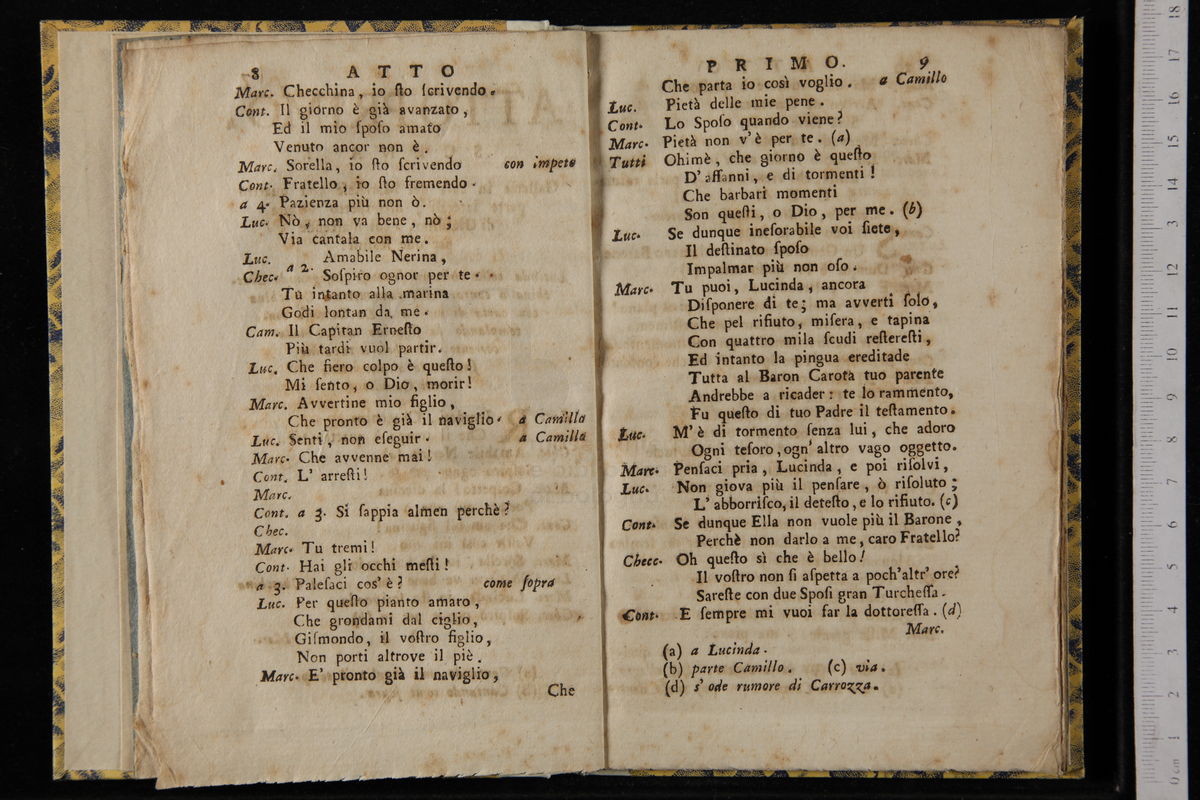 8 ATTO
Marc. Checchina, io ſto ſcrivendo.
Cont. Il giorno è già avanzato,
Ed il mio ſpoſo amato
Venuto ancor non è.
Marc. Sorella, io ſto ſcrivendo con impeto
Cont. Fratello, io ſto fremendo.
a 4. Pazienza più non ò.
Luc. Nò, non va bene, nò;
Via cantala con me.
Luc. Amabile Nerina,
Chec. a 2. Soſpiro ognor per te.
Tu intanto alla marina
Godi lontan da me.
Cam. Il Capitan Erneſto
Più tardi vuol partir.
Luc. Che fiero colpo è queſto!
Mi ſento, o Dio, morir!
Marc. Avvertine mio figlio,
Che pronto è già il naviglio. a Camillo
Luc. Senti, non eſeguir. a Camillo
Marc. Che avvenne mai!
Cont. L' arreſti!
Marc.
Cont. a 3. Si ſappia almen perchè?
Chec.
Marc. Tu tremi!
Cont. Hai gli occhi meſti!
a 3. Paleſaci cos' è? come ſopra
Luc. Per queſto pianto amaro,
Che grondami dal ciglio,
Giſmondo, il voſtro figlio,
Non porti altrove il piè.
Marc. E' pronto già il naviglio,
Che
PRIMO. 9
Che parta io così voglio. a Camillo
Luc. Pietà delle mie pene.
Cont. Lo Spoſo quando viene?
Marc. Pietà non v'è per te. (a)
Tutti Ohimè, che giorno è queſto
D' affanni, e di tormenti!
Che barbari momenti
Son queſti, o Dio, per me. (b)
Luc. Se dunque ineſorabile voi ſiete,
Il deſtinato ſpoſo
Impalmar più non oſo.
Marc. Tu puoi, Lucinda, ancora
Diſponere di te; ma avverti ſolo,
Che pel rifiuto, miſera, e tapina
Con quattro mila ſcudi reſtereſti,
Ed intanto la pingua ereditade
Tutta al Baron Carota tuo parente
Andrebbe a ricader: te lo rammento,
Fu queſto di tuo Padre il teſtamento.
Luc. M' è di tormento ſenza lui, che adoro
Ogni teſoro, ogn' altro vago oggetto.
Marc. Penſaci pria, Lucinda, e poi riſolvi,
Luc. Non giova più il penſare, ò riſoluto;
L' abborriſco, il deteſto, e lo rifiuto. (c)
Cont. Se dunque Ella non vuole più il Barone,
Perchè non darlo a me, caro Fratello?
Checc. Oh queſto sì che è bello!
Il voſtro non ſi aſpetta a poch'altr' ore?
Sareſte con due Spoſi gran Turcheſſa.
Cont. E ſempre mi vuoi far la dottoreſſa. (d)
Marc.
(a) a Lucinda.
(b) parte Camillo. (c) via.
(d) s' ode rumore di Carrozza.
18
17
16
15
14
13
12
11
10
9
8
7
6
5
4
3
2
1
0 cm